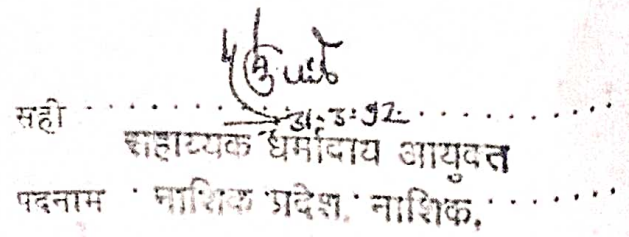 सही ............ 31-3-92 ............
सहाय्यक धर्मादाय आयुक्त
पदनाम . नाशिक प्रदेश. नाशिक. ......